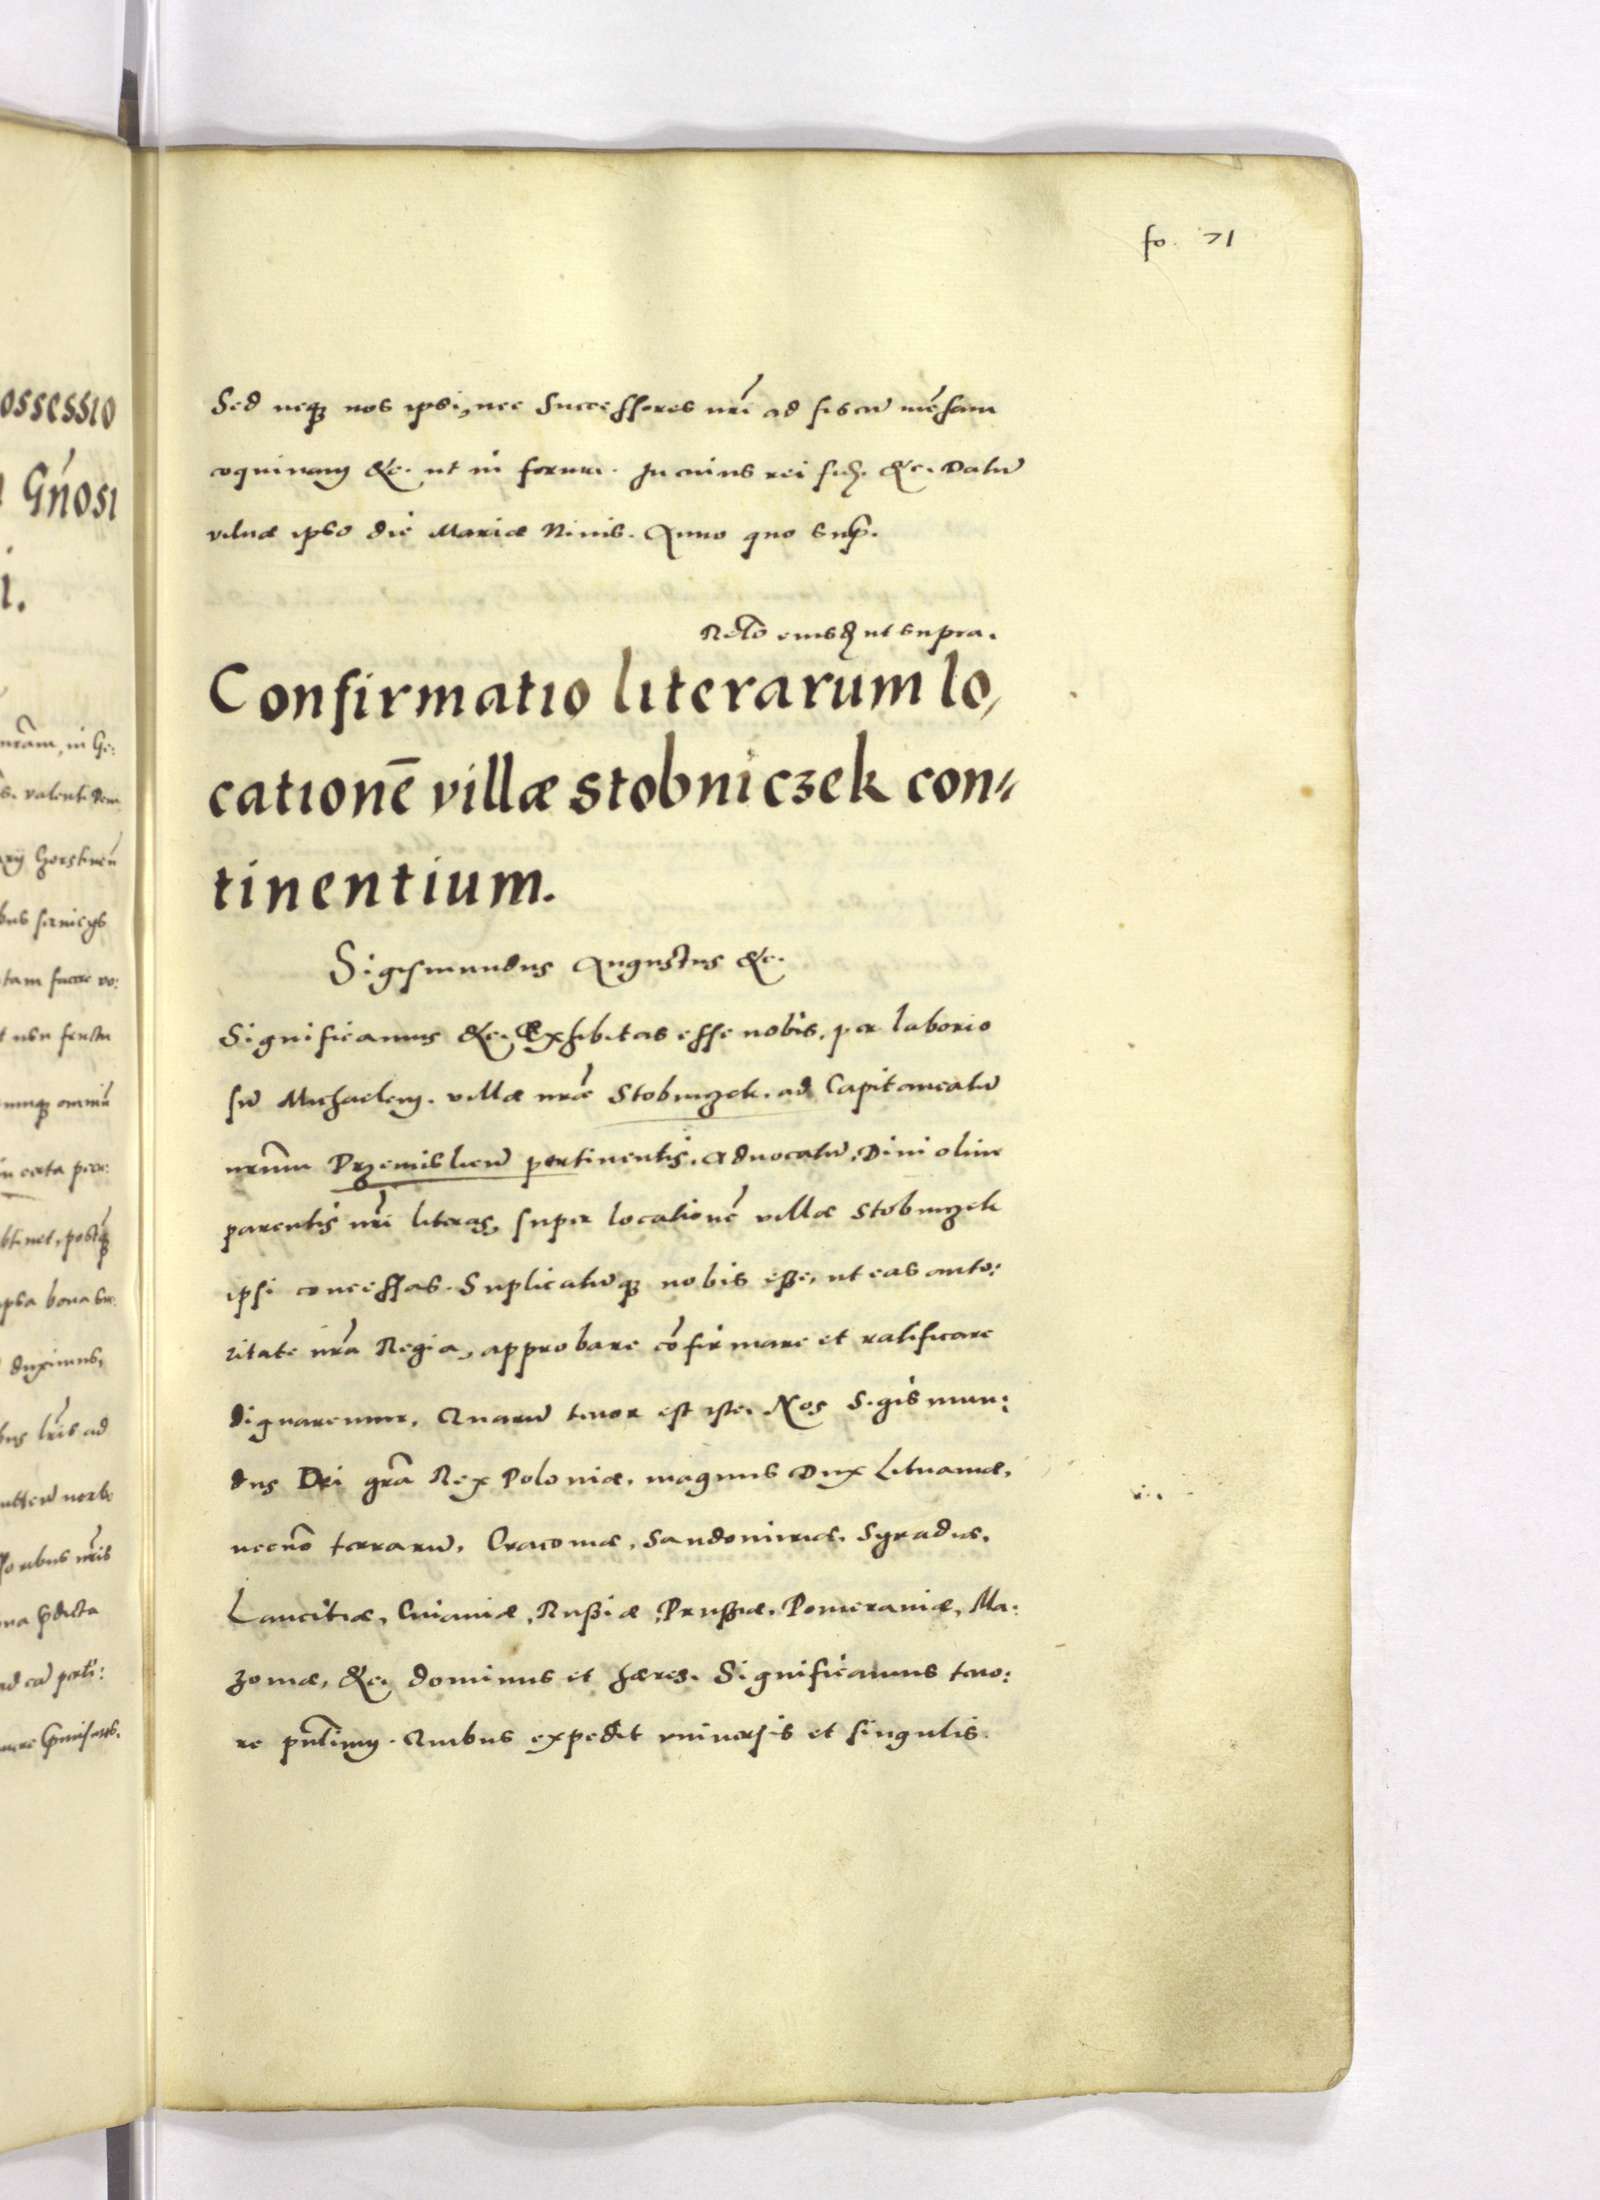 fo. 71
Sed neqz nos ipsi, nec Successores nri ad fiscu mēsam
coquinam &c. ut in forma. In cuius rei fid. &c. Datū
vilnæ ipso die Mariæ Nivis. Anno quo sup.
Relō eiusd ut supra.
Confirmatio literarum lo,
cationē villæ stobniczek con=
tinentium.
Sigismundus Augustus &c.
Significamus &c. Exhibitas esse nobis, per laborio
sū Michaelem. villæ nræ Stobniczek. ad Capitaneatū
nrum Przemisliens pertinentis. advocatū, Divi olim
parentis nri literas, super locationē villæ Stobniczek
ipsi concessas. Suplicatūqz nobis esse, ut eas auto:
ritate nra Regia, approbare cōfirmare et ratificare
dignaremur. Quarū tenor est iste. Nos Sigismun:
dus Dei grā Rex Poloniæ. magnus Dux Lituaniæ,
necnō terrarū, Cracoviæ, Sandomiriæ, Syradiæ,
Lanciciæ, Cuiaviæ, Russiæ, Prussiæ, Pomeraniæ, Ma:
zoviæ, &c. dominus et hæres. Significamus teno:
re pntium. Quibus expedit universis et singulis
ossessio
Gnosi